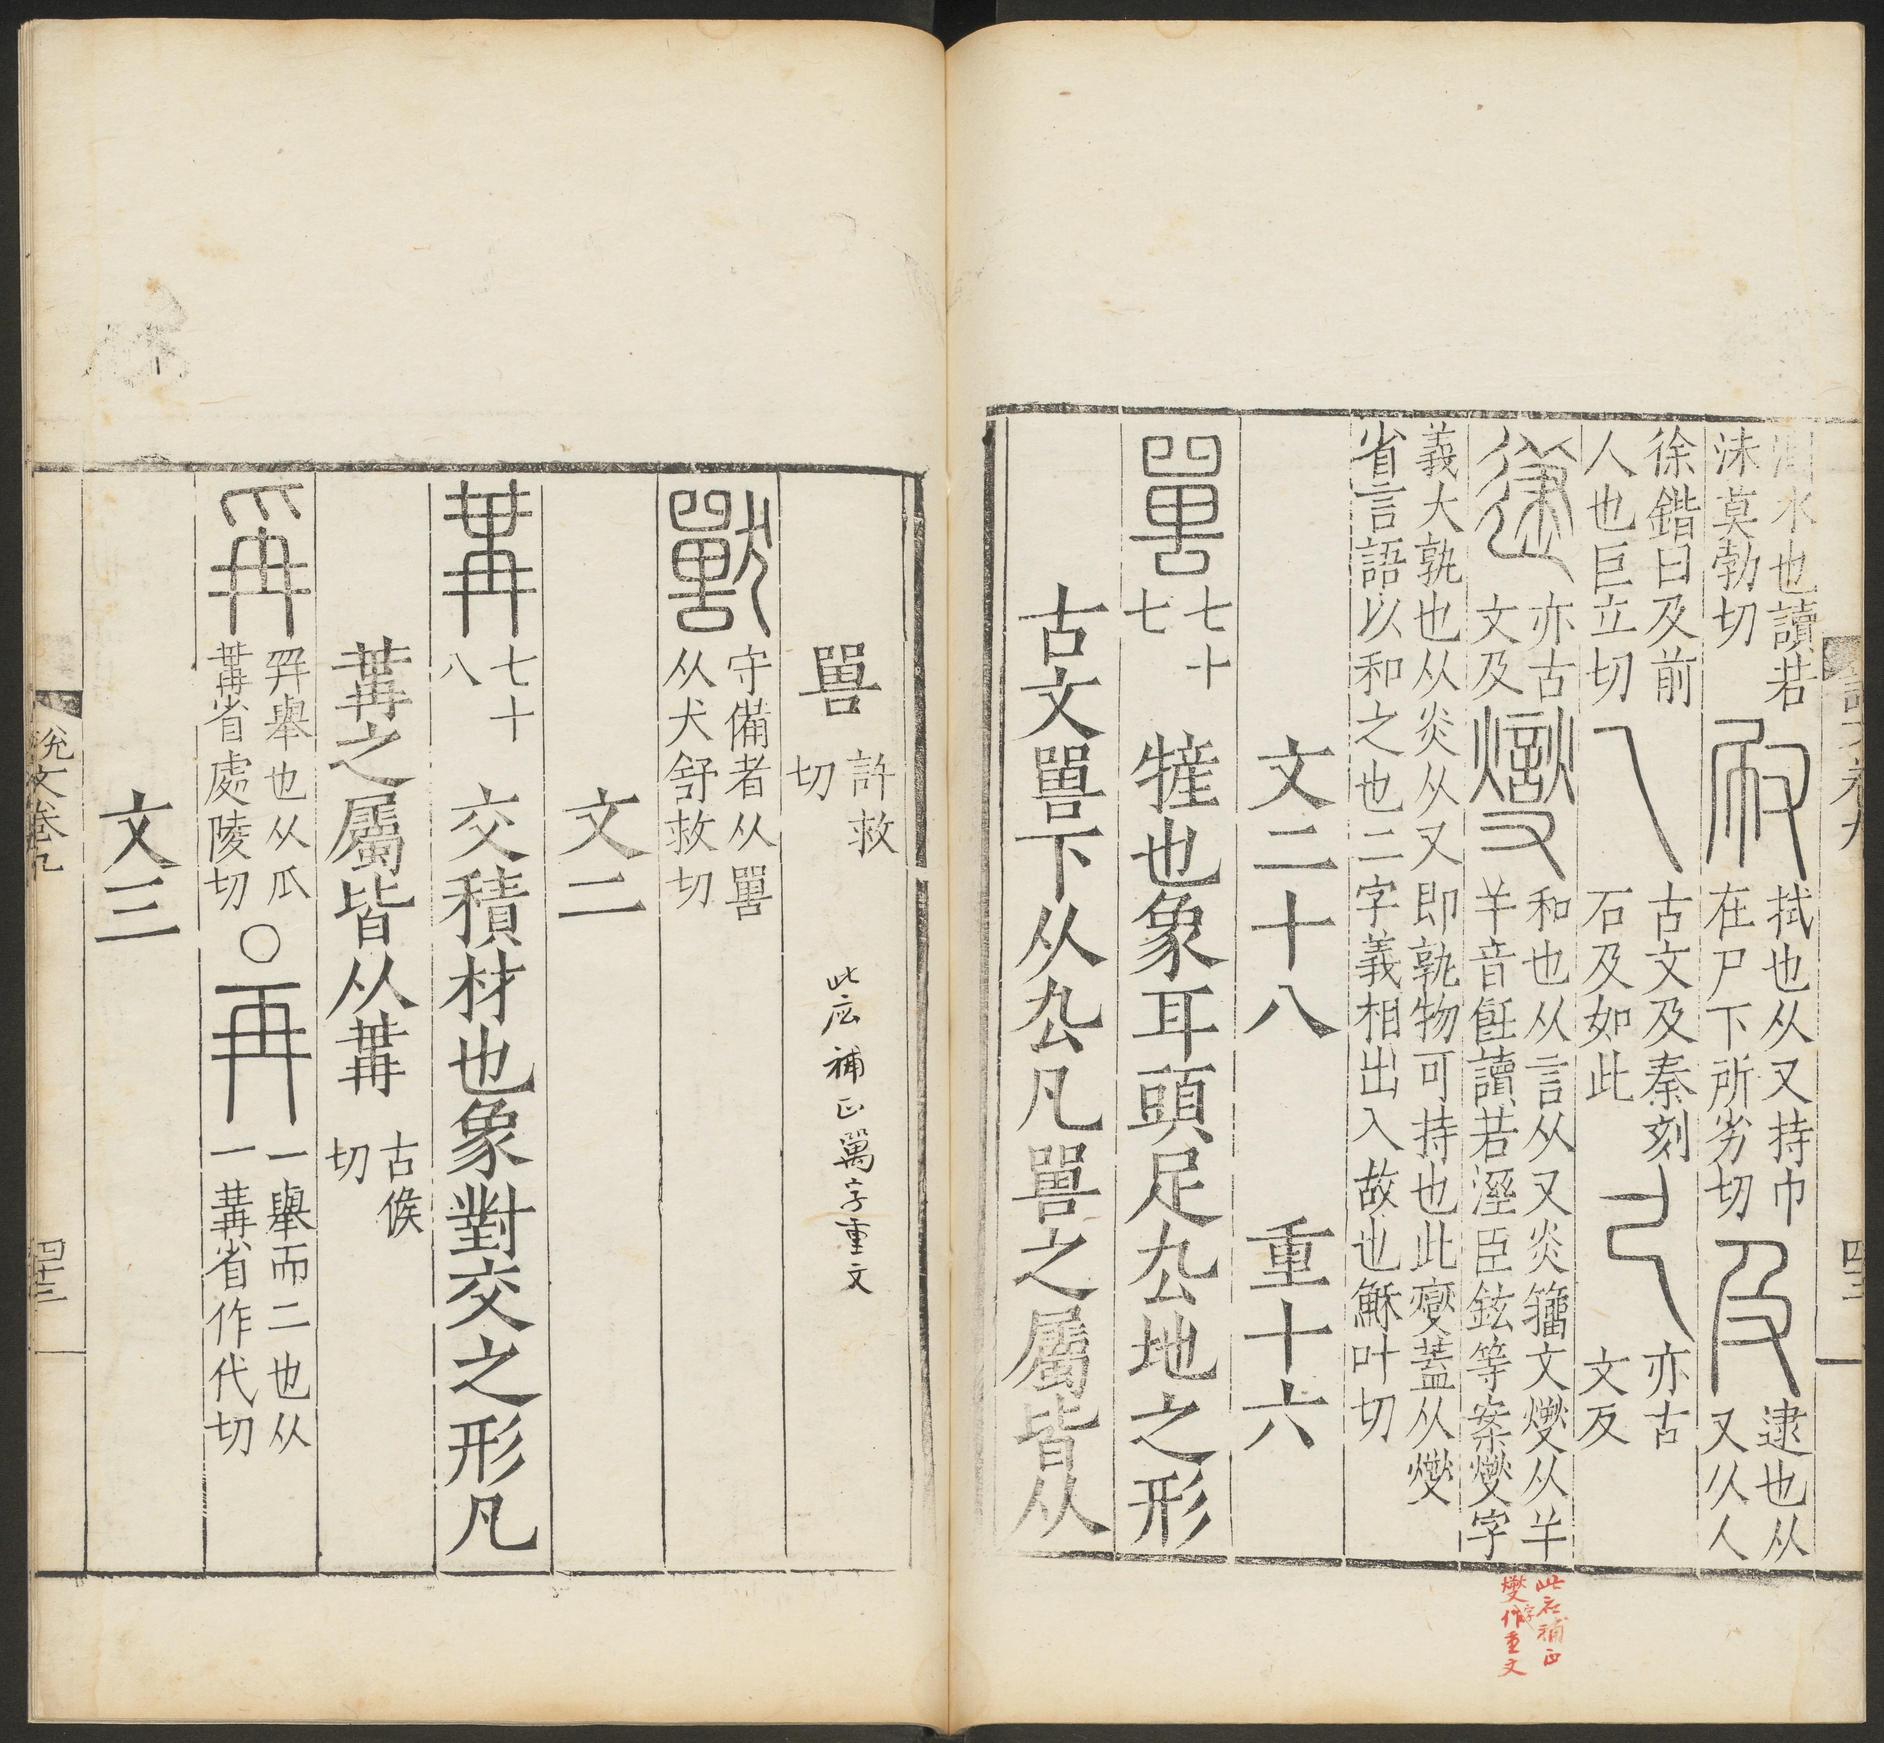 水也讀若
沬莫勃切
㕞
拭也从又持巾
在尸下所劣切
及
逮也从
又从人
徐鍇曰及前
人也巨立切
乁
古文及秦刻
石及如此
亦古
文及
亦古
文及
燮
和也从言从又炎籒文燮从羊
羊音飪讀若溼臣鉉等案燮字
義大孰也从炎从又即孰物可持也此燮蓋从燮
省言語以和之也二字義相出入故也穌叶切
文二十八 重十六
嘼
七十
七
㹌也象耳頭足厹地之形
古文嘼下从厹凡嘼之屬皆从
說文卷九
此應補正
燮字作重文
嘼
許救
切
此應補正萬字重文
獸
守備者从嘼
从犬舒救切
文二
冓
七十
八
交積材也象對交之形凡
冓之屬皆从冓
古候
切
爯
并舉也从爪
冓省處陵切
○
再
一舉而二也从
一冓省作代切
文三
說文卷九
四十三